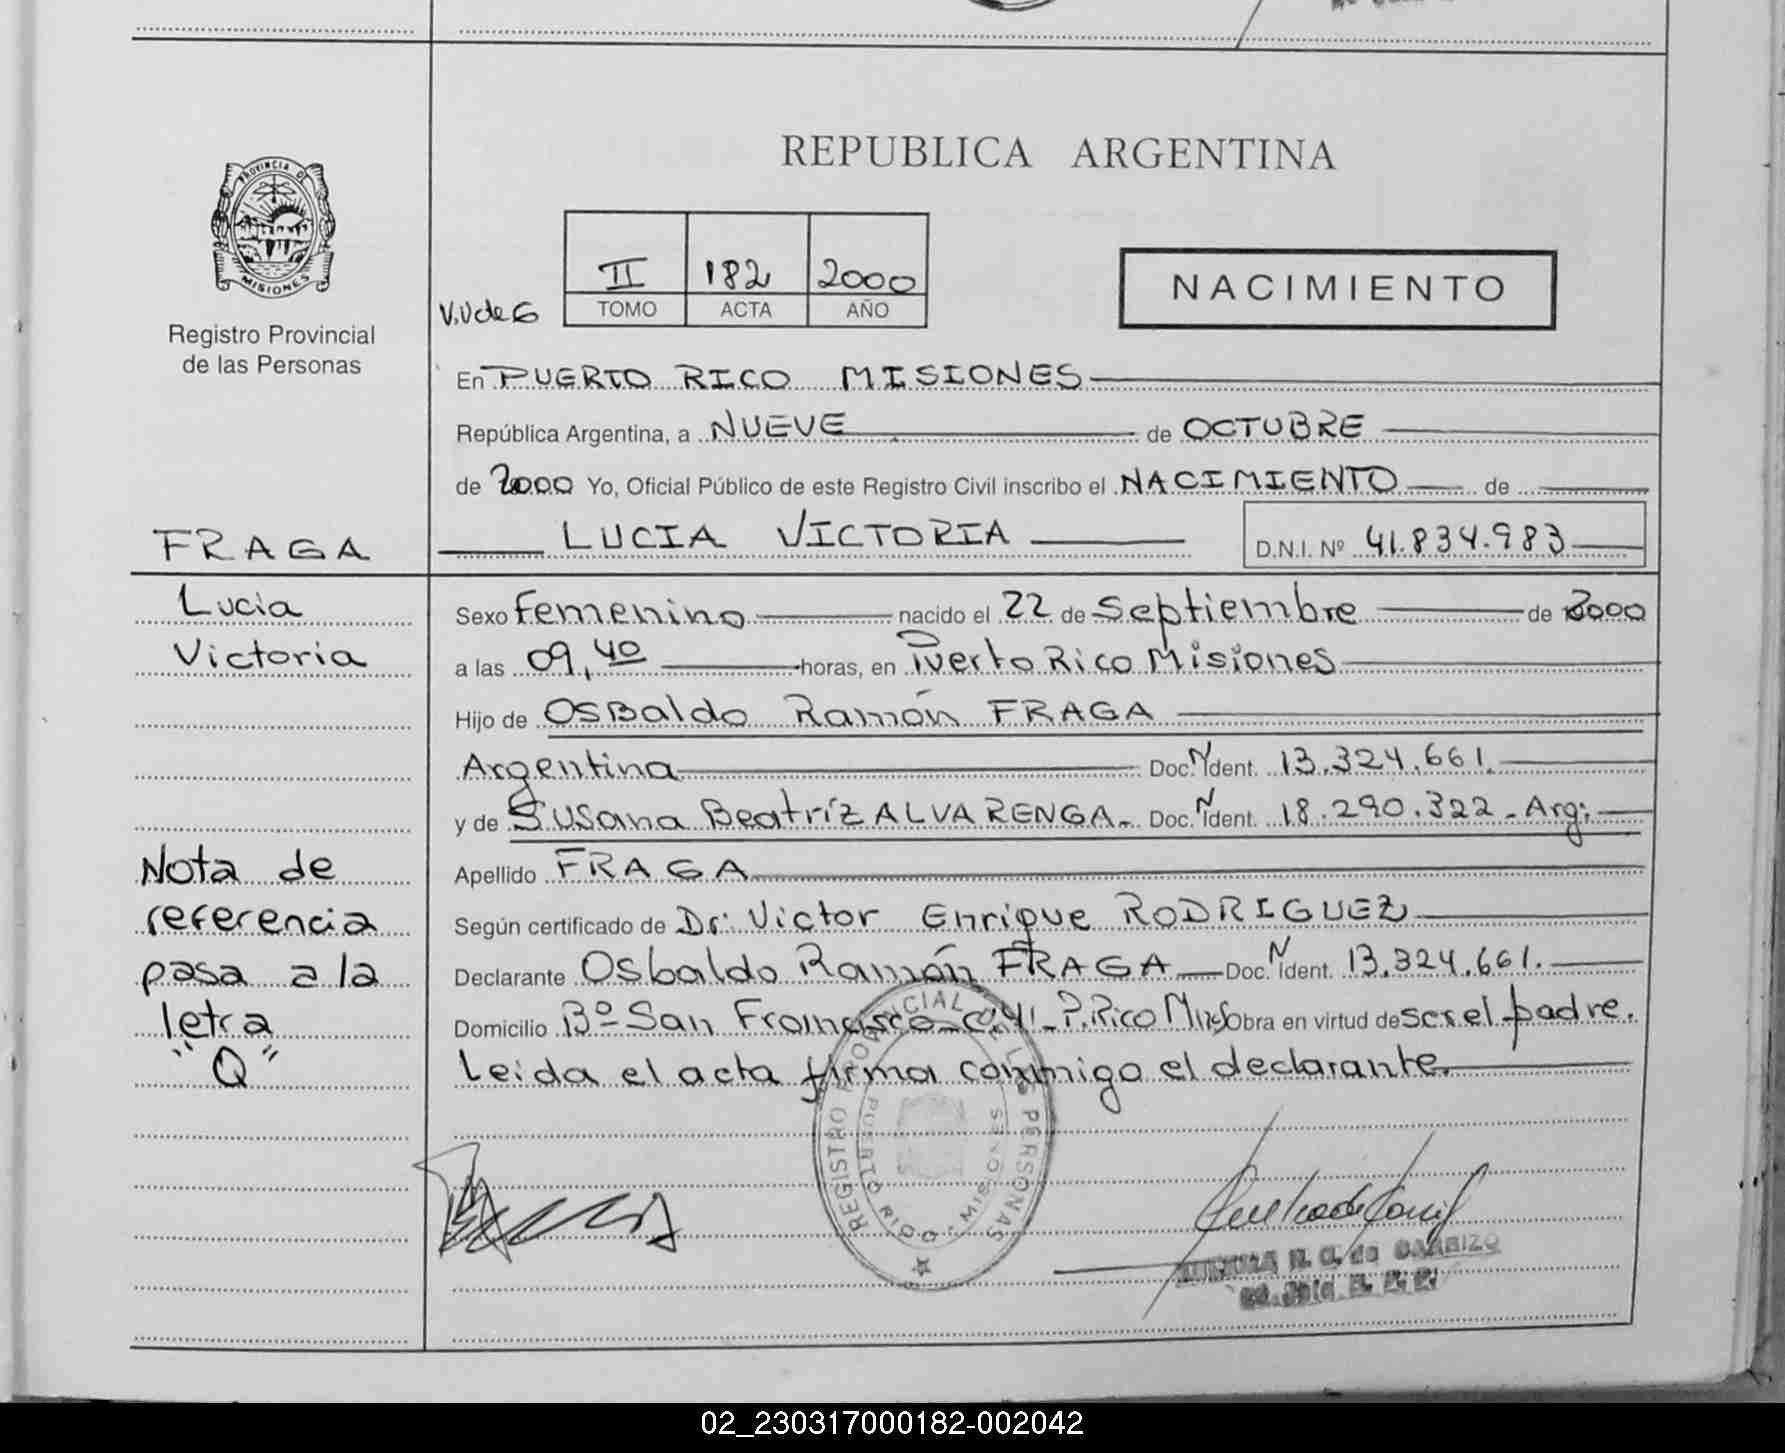 REPUBLICA ARGENTINA
PROVINCIA DE
MISIONES
Registro Provincial
de las Personas
II 182 2000
TOMO ACTA AÑO
V.V de G
NACIMIENTO
En PUERTO RICO MISIONES
República Argentina, a NUEVE de OCTUBRE
de 2000 Yo, Oficial Público de este Registro Civil inscribo el NACIMIENTO de
FRAGA
LUCIA VICTORIA D.N.I. Nº 41.834.983
Lucia
Victoria
Sexo Femenino nacido el 22 de Septiembre de 2000
a las 09,40 horas, en Puerto Rico Misiones
Hijo de OSBaldo Ramón FRAGA
Argentina Doc. N Ident. 13.324.661.
y de Susana Beatríz ALVARENGA Doc. N Ident. 18.290.322 - Arg:
Apellido FRAGA
Según certificado de Dr: Victor Enrique RODRIGUEZ
Declarante Osbaldo Ramón FRAGA Doc. N Ident. 13.324.661.
Domicilio Bº San Francisco P. Rico Obra en virtud de ser el padre.
Leida el acta firma conmigo el declarante.
Nota de
referencia
pasa a la
letra
"Q"
REGISTRO PROVINCIAL DE LAS PERSONAS
PUERTO RICO - MISIONES
02_230317000182-002042